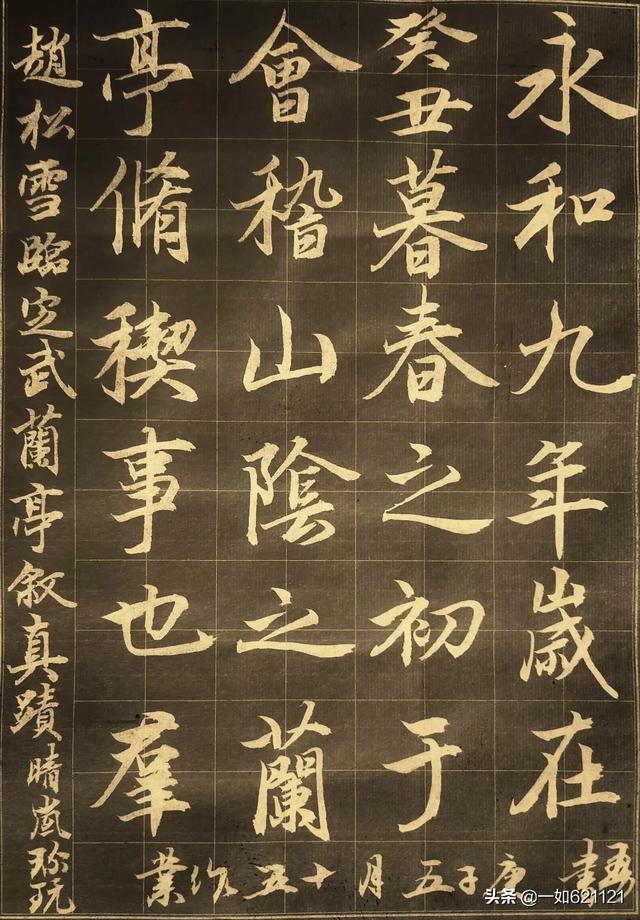 永和九年歲在
癸丑暮春之初于
會稽山陰之蘭
亭脩禊事也羣
趙松雪臨定武蘭亭敘真蹟晴嵐珍玩
庚子五月十五作業
头条 @一如621121